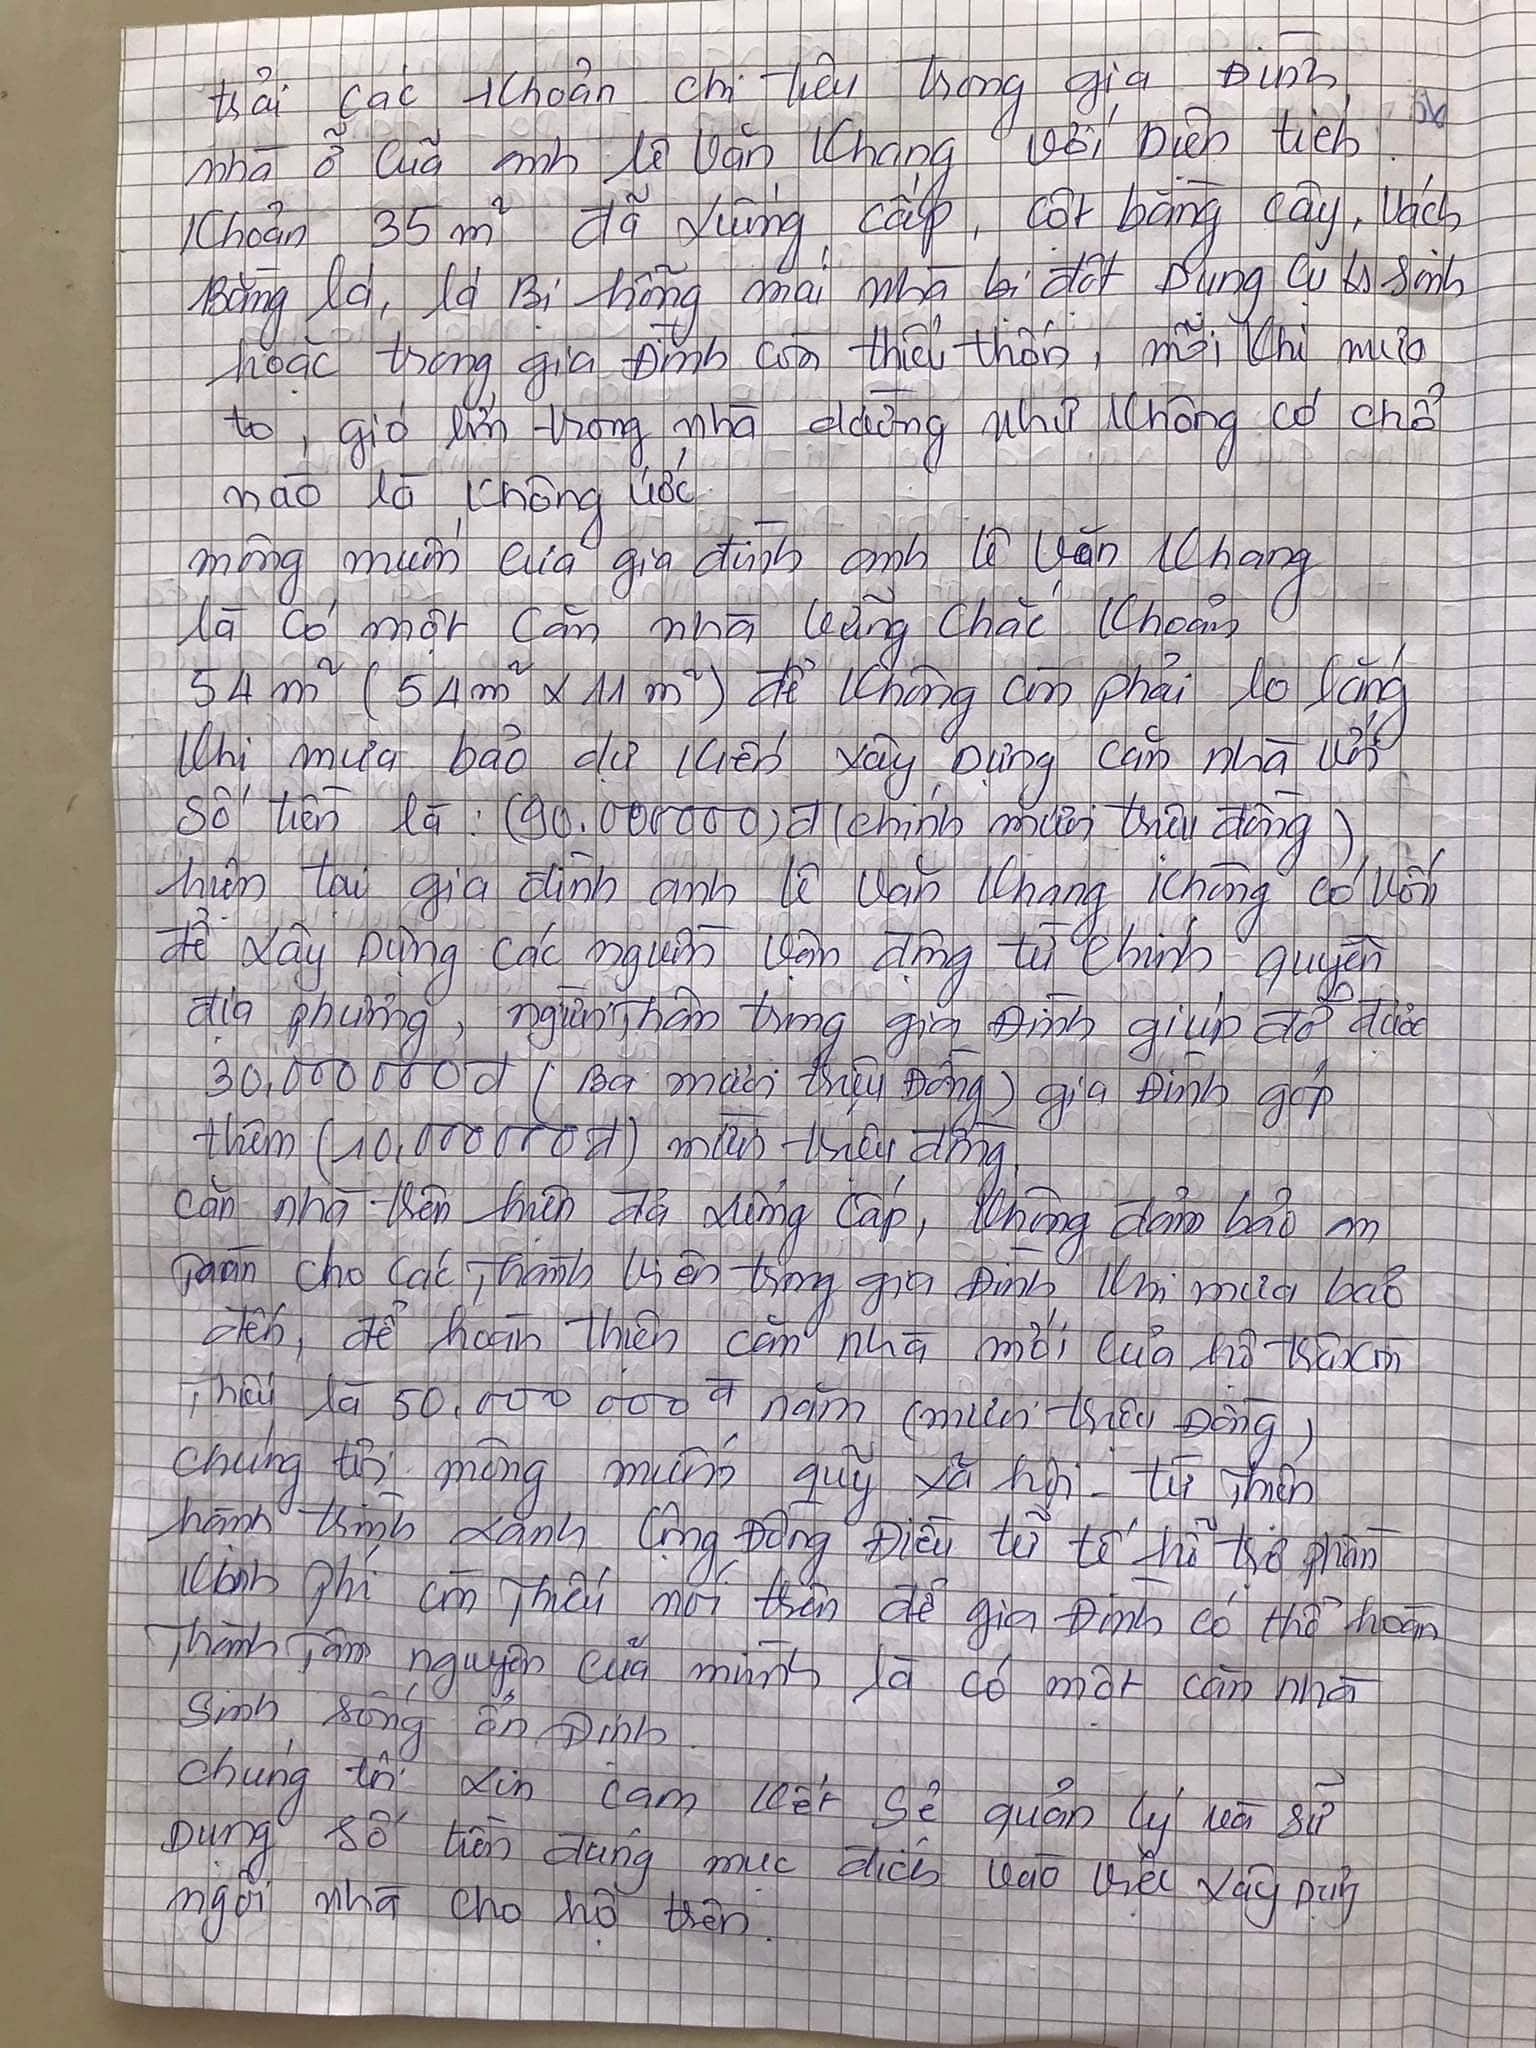 trải các khoản chi tiêu trong gia Đình
nhà ở cuả anh lê Văn Khang với Diện tích
Khoản 35 m² đã xuống cấp, cột bằng cây, Vách
Bằng lá, lá Bị hỗng mái nhà bị dột Dụng cụ sinh
hoặc trong gia Đình còn thiếu thốn, mỗi Khi mưa
to, gió lớn trong nhà dường như Không có chổ
nào là Không ướt
mông muốn của gia đình anh lê Văn Khang
là có một căn nhà vững chắc Khoản
54 m² (54m² x 11 m²) để Không còn phải lo lắng
Khi mưa bảo dự kiến xây Dựng căn nhà với
số tiền là: (90.000000)đ (chính mươi triệu đồng)
hiện tại gia đình anh lê Văn Khang không có Vốn
để xây Dựng các nguồn vận động từ chính quyền
địa phương, người thân trong gia Đình giúp đở được
30,000 000đ (Ba mươi triệu Đồng) gia Đình góp
thêm (10,000 000đ) mười triệu đồng,
căn nhà trên hiện đã xuống cấp, Không đảm bảo an
Toàn cho các Thành Viên trong gia Đình Khi mưa baỏ
đến, để hoàn thiện căn nhà mới của hộ trên còn
Thiếu là 50.000 000đ năm (mươi triệu Đồng)
chúng tôi mông muốn quỹ xã hội - từ Thiện
hành trình xanh Cộng Đồng Điều tử tế hỗ trợ phần
Kinh phí còn Thiếu nói trên để gia Đình có thể hoàn
Thành Tâm nguyện cuả mình là có một căn nhà
sinh sống ổn Định.
chúng tôi xin cam Kết sẻ quản lý và sử
Dụng số tiền đúng mục đích vào việc xây Dựng
ngôi nhà cho hộ trên.